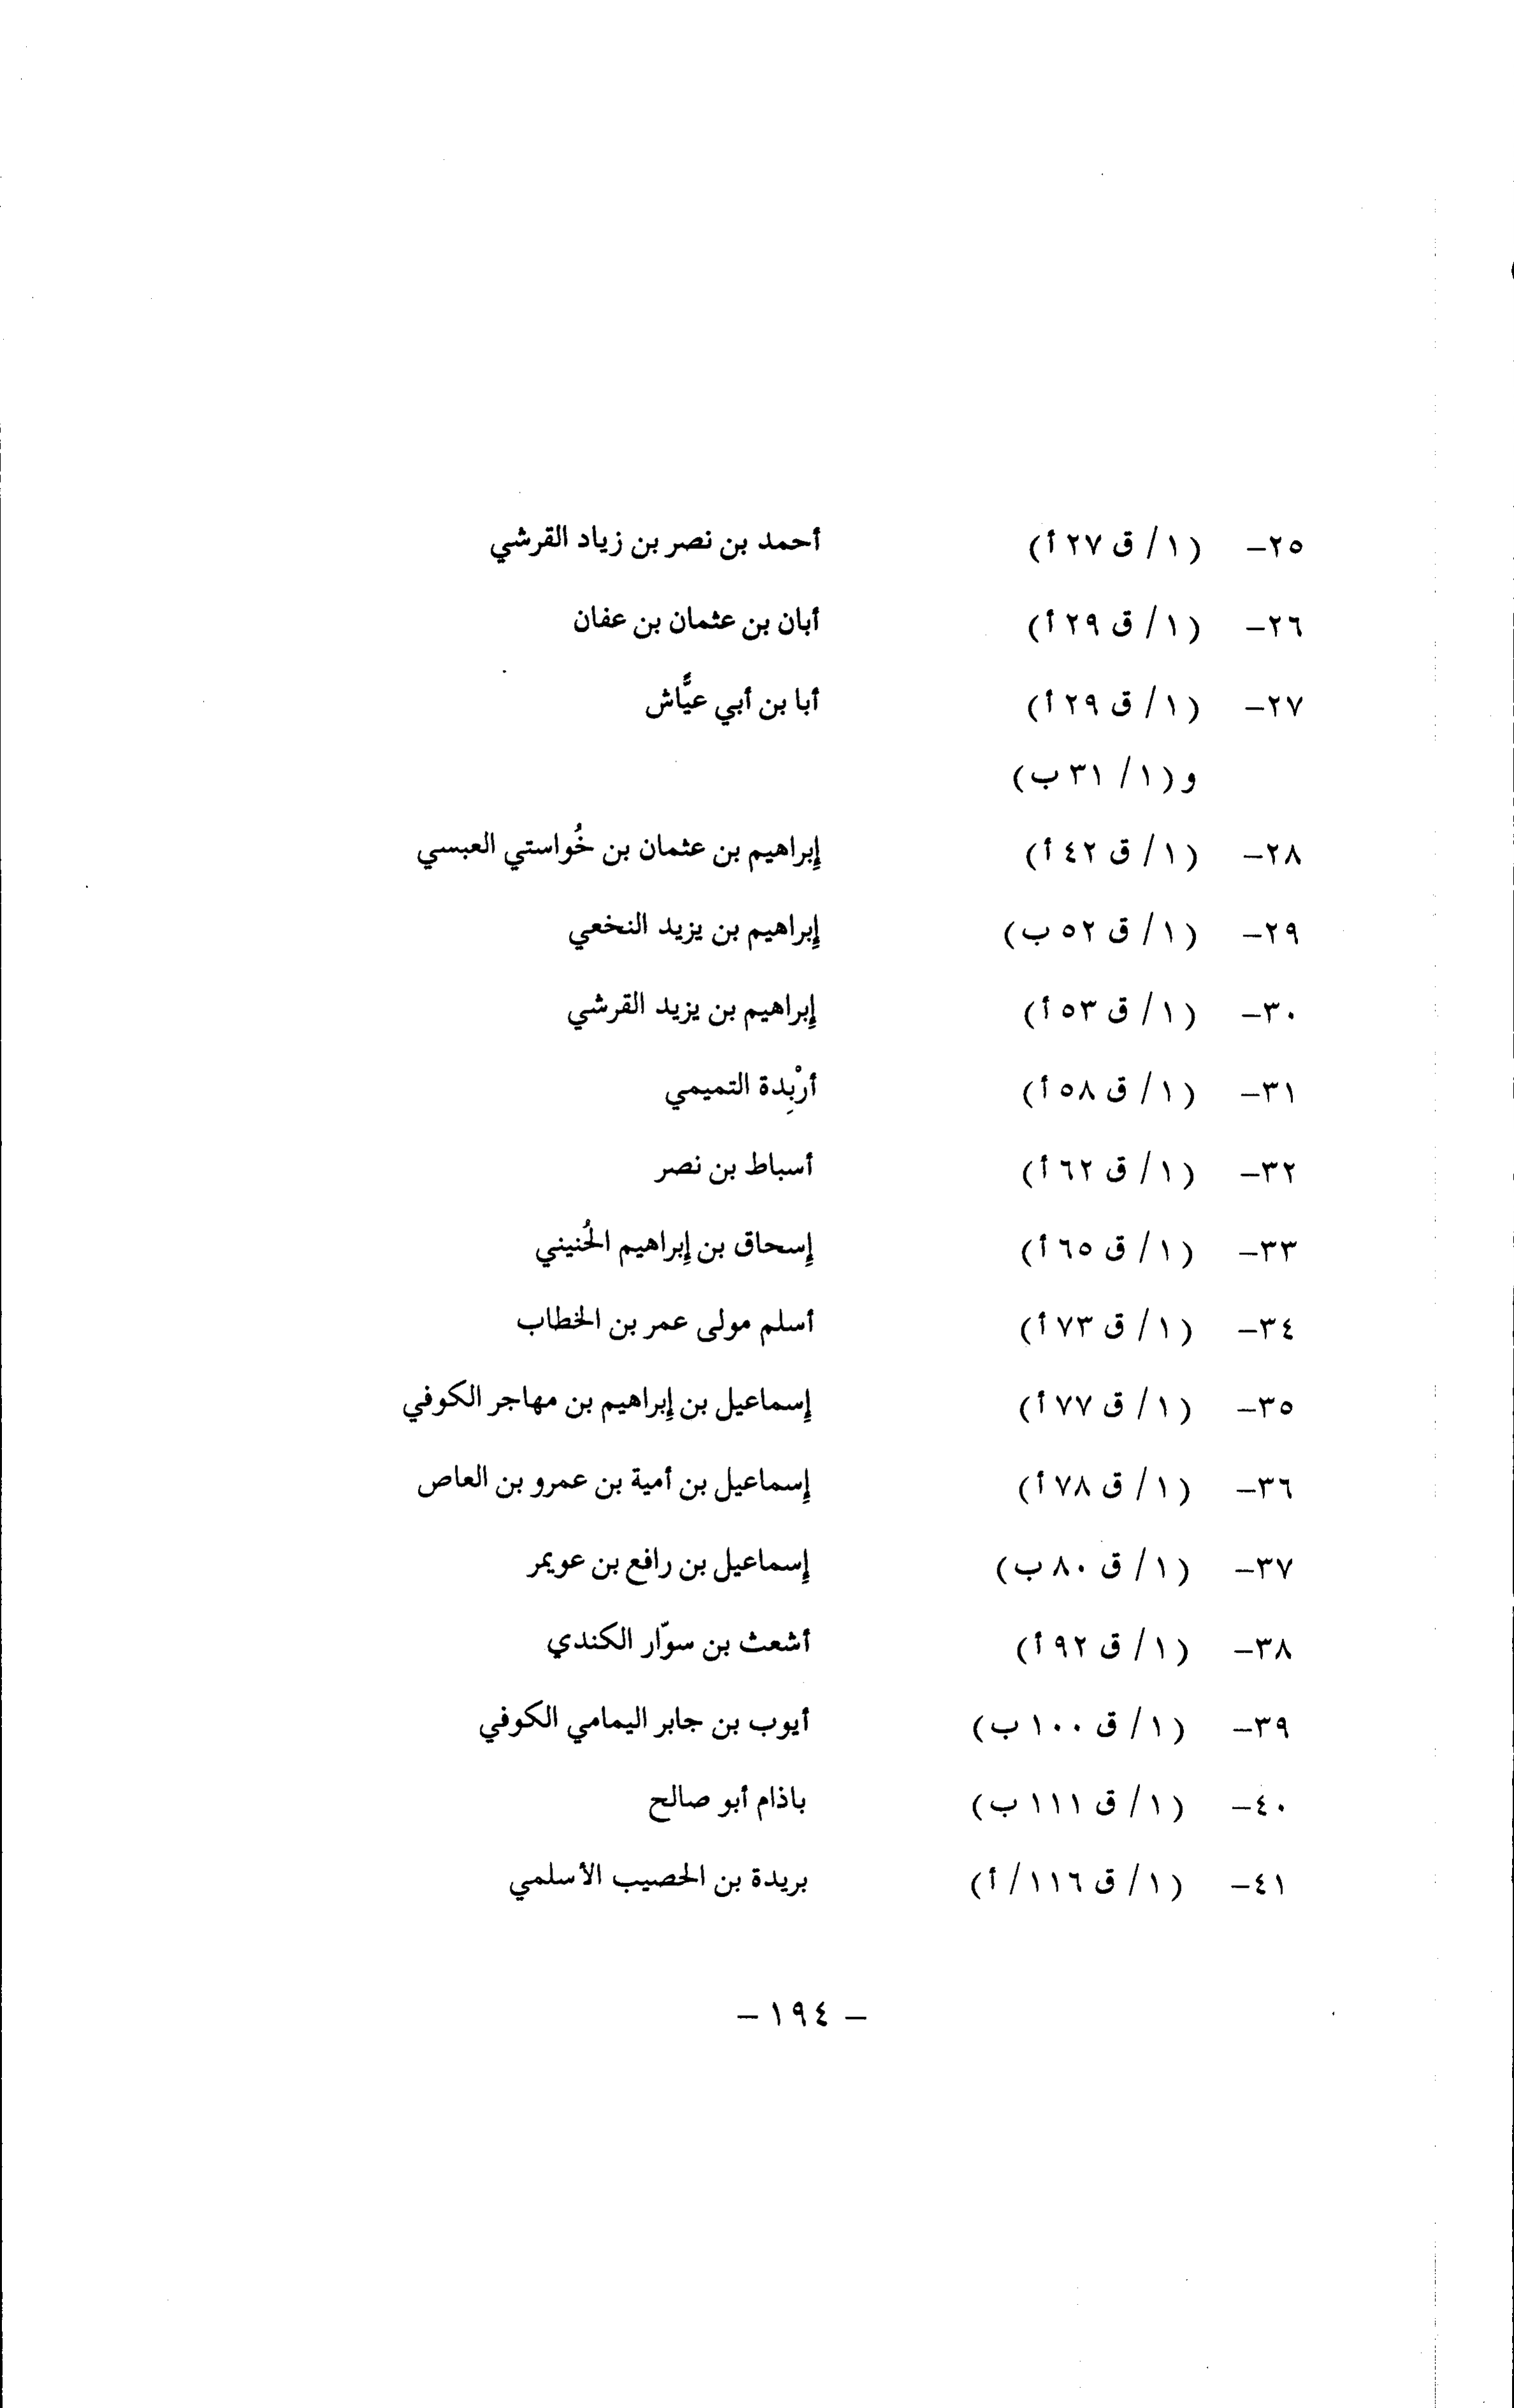 ٢٥- (١/ ق ٢٧ أ) أحمد بن نصر بن زياد القرشي
٢٦- (١/ ق ٢٩ أ) أبان بن عثمان بن عفان
٢٧- (١/ ق ٢٩ أ) أبا بن أبي عيَّاش
و (١/ ٣١ ب)
٢٨- (١/ ق ٤٢ أ) إبراهيم بن عثمان بن خُواستي العبسي
٢٩- (١/ ق ٥٢ ب) إبراهيم بن يزيد النخعي
٣٠- (١/ ق ٥٣ أ) إبراهيم بن يزيد القرشي
٣١- (١/ ق ٥٨ أ) أرْبِدة التميمي
٣٢- (١/ ق ٦٢ أ) أسباط بن نصر
٣٣- (١/ ق ٦٥ أ) إسحاق بن إبراهيم الحُنيني
٣٤- (١/ ق ٧٣ أ) أسلم مولى عمر بن الخطاب
٣٥- (١/ ق ٧٧ أ) إسماعيل بن إبراهيم بن مهاجر الكوفي
٣٦- (١/ ق ٧٨ أ) إسماعيل بن أمية بن عمرو بن العاص
٣٧- (١/ ق ٨٠ ب) إسماعيل بن رافع بن عويمر
٣٨- (١/ ق ٩٢ أ) أشعث بن سوّار الكندي
٣٩- (١/ ق ١٠٠ ب) أيوب بن جابر اليمامي الكوفي
٤٠- (١/ ق ١١١ ب) باذام أبو صالح
٤١- (١/ ق ١١٦/ أ) بريدة بن الحصيب الأسلمي
- ١٩٤ -